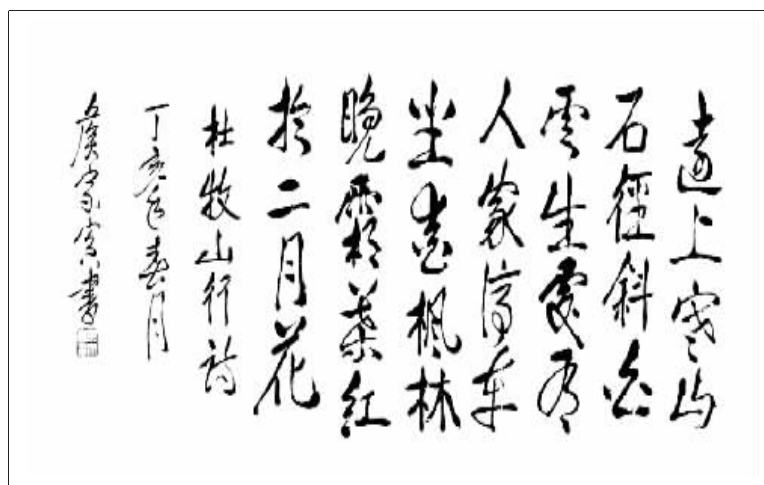 遠上寒山
石徑斜白
雲生處有
人家停車
坐愛楓林
晚霜葉紅
於二月花
杜牧山行詩
丁亥年春月
書